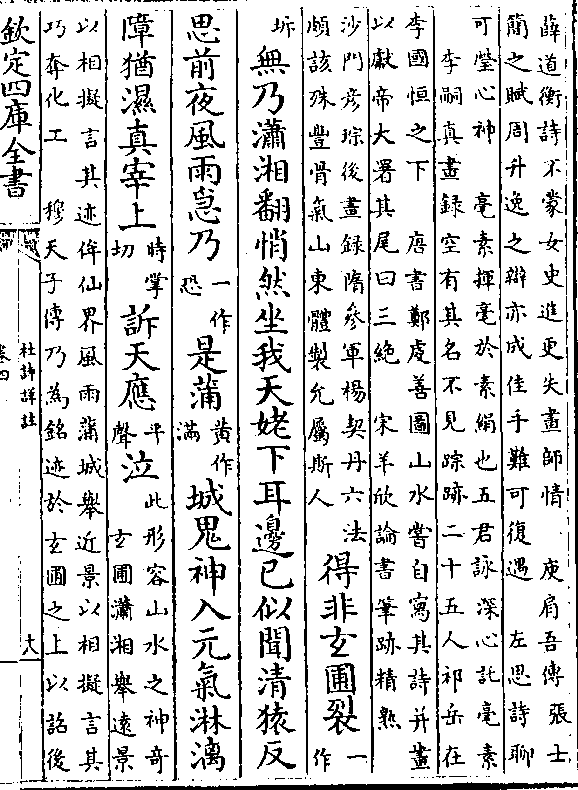 薛道衡詩不蒙女史進更失畫師情　庾肩吾傳張士
簡之賦周升逸之辯亦成佳手難可復遇　左思詩聊
可瑩心神　毫素揮毫於素絹也五君詠深心託毫素
李嗣真畫録空有其名不見踪跡二十五人祁岳在
李國恒之下　唐書鄭虔善圖山水嘗自寫其詩并畫
以獻帝大署其尾曰三絶　宋羊欣論書筆跡精熟
沙門彦琮後畫録隋參軍楊契丹六法
頗該殊豐骨氣山東體製允屬斯人
得非玄圃裂
一作
坼
無乃瀟湘翻悄然坐我天姥下耳邊已似聞清猿反
思前夜風雨急乃
一作
恐
是蒲
黄作
滿
城鬼神入元氣淋漓
障猶濕真宰上
時掌
切
訴天應
平
聲
泣
此形容山水之神奇
玄圃瀟湘舉遠景
以相擬言其迹侔仙界風雨蒲城舉近景以相擬言其
巧奔化工　穆天子傳乃為銘迹於玄圃之上以詔後
欽定四庫全書
杜詩詳註
卷四